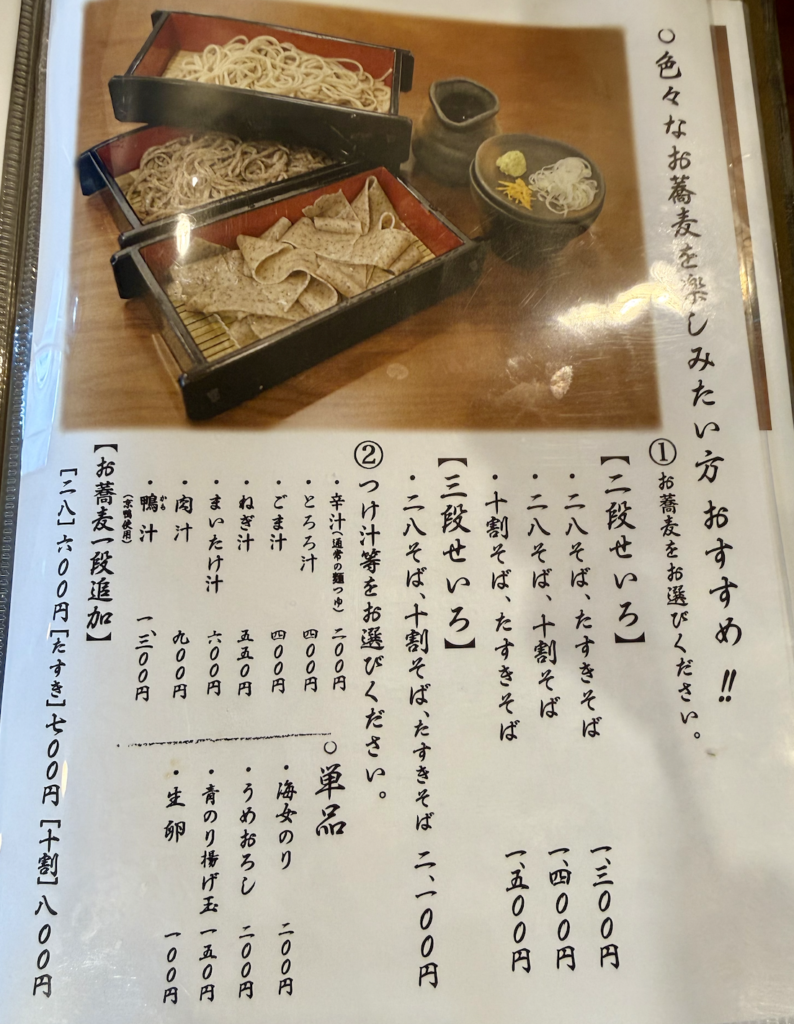 ○色々なお蕎麦を楽しみたい方 おすすめ!!
①お蕎麦をお選びください。
【二段せいろ】
・二八そば、たすきそば 一、三〇〇円
・二八そば、十割そば 一、四〇〇円
・十割そば、たすきそば 一、五〇〇円
【三段せいろ】
・二八そば、十割そば、たすきそば 二、一〇〇円
②つけ汁等をお選びください。
・辛汁(通常の麺つゆ) 二〇〇円
・とろろ汁 四〇〇円
・ごま汁 四〇〇円
・ねぎ汁 五五〇円
・まいたけ汁 六〇〇円
・肉汁 九〇〇円
・鴨汁 一、三〇〇円
かも
(京鴨使用)
【お蕎麦一段追加】
[二八]六〇〇円[たすき]七〇〇円[十割]八〇〇円
○単品
・海女のり 二〇〇円
・うめおろし 二〇〇円
・青のり揚げ玉 一五〇円
・生卵 一〇〇円